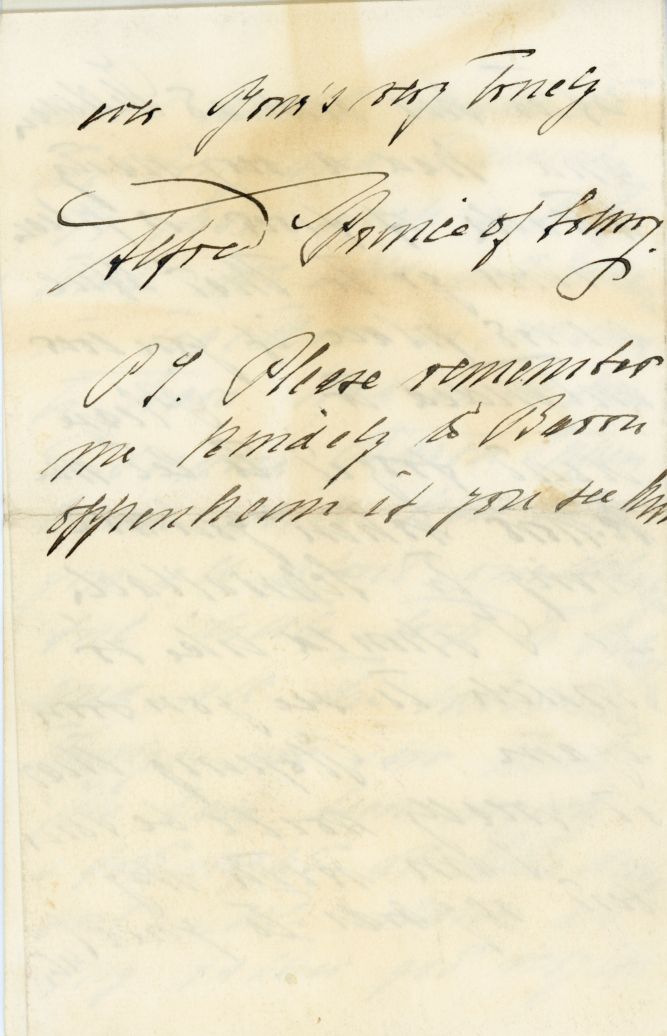 ever Your's very truely
Alfred Prince of
P S. Please remember
me kindely to Baron
oppenheim if you see him